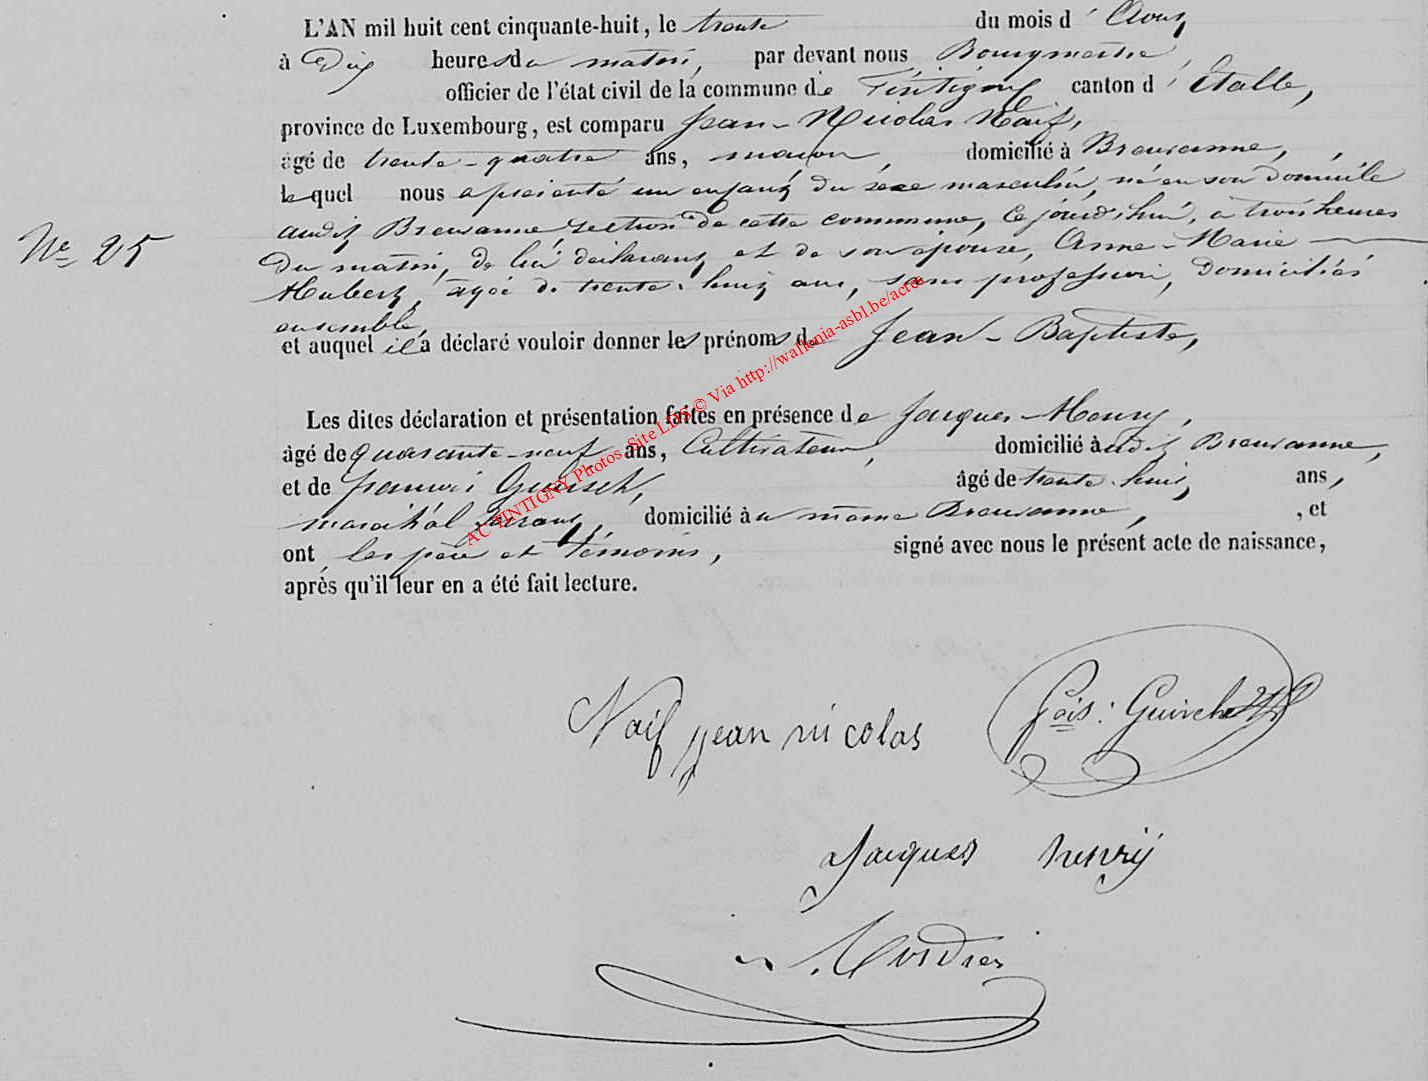 L'AN mil huit cent cinquante-huit, le trente du mois d'Août
à Dix heures du matin, par devant nous Bourgmestre,
officier de l'état civil de la commune de Tintigny canton d'Etalle,
province de Luxembourg, est comparu Jean-Nicolas Naif,
âgé de trente-quatre ans, maçon, domicilié à Breuvanne,
lequel nous a présenté un enfant du sexe masculin, né en son domicile
audit Breuvanne section de cette commune, ce jourd'hui, à trois heures
du matin, de lui déclarant et de son épouse, Anne-Marie
Hubert, âgée de trente-huit ans, sans profession, domiciliés
ensemble,
et auquel il a déclaré vouloir donner les prénoms de Jean-Baptiste,
Les dites déclaration et présentation faites en présence de Jacques Henry,
âgé de quarante-neuf ans, Cultivateur, domicilié audit Breuvanne,
et de François Guirsch, âgé de trente-huit ans,
maréchal ferrant, domicilié au même Breuvanne, , et
ont les père et témoins, signé avec nous le présent acte de naissance,
après qu'il leur en a été fait lecture.
N° 25
AC TINTIGNY Photos Site LDS © Via http://wallonia-asbl.be/actes
Naif jean nicolas
Fçois: Guirch
Jacques henry